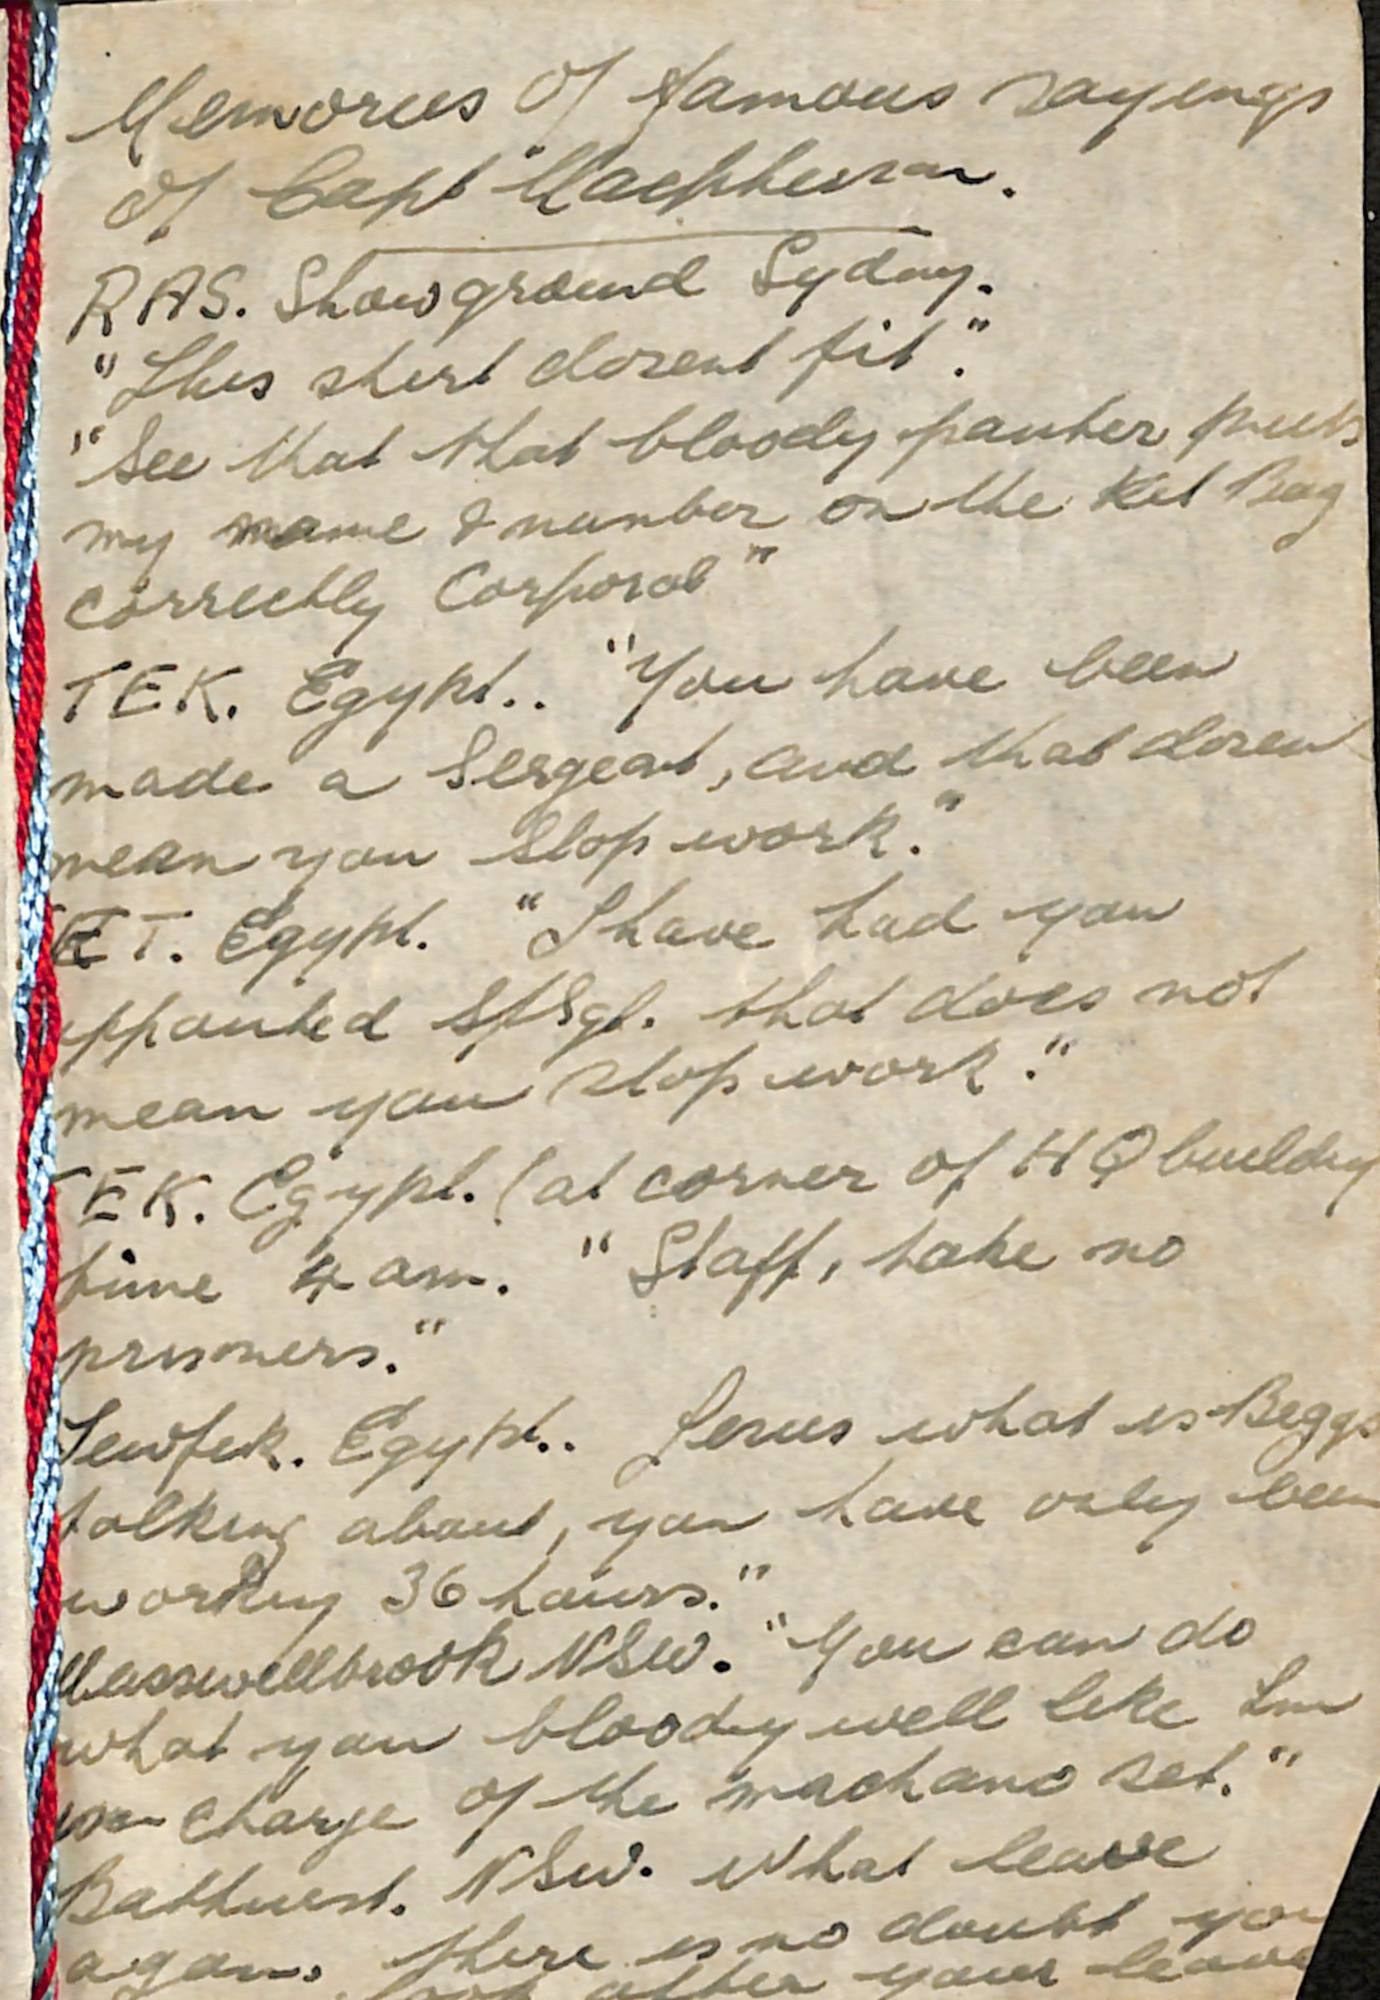 Memories Of famous sayings
Of Capt Macpherson.
RAS. Showground Sydny.
"This shirt dosent fit."
"See that that bloody painter puts
my name & number on the Kit Bag
correctly Corporal"
TEK. Egypt.. "You have been
made a Sergeant, and that dosen
mean you stop work."
ET. Egypt. "I have had you
ppointed S/Sgt. that does not
mean you stop work."
TEK. Egypt. (at corner of HQ building
time 4 am. "Staff, take no
prisoners."
Tewfek. Egypt.. Jesus what is Beggs
talking about, you have only been
working 36 hours."
Musswellbrook NSW. "You can do
what you bloody well like Im
in charge of the machano set."
Bathurst. NSW. What leave
again. there is no doubt you
look after your leave